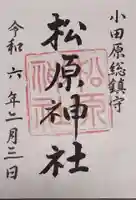 小田原総鎮守
松原神社
令和六年二月三日